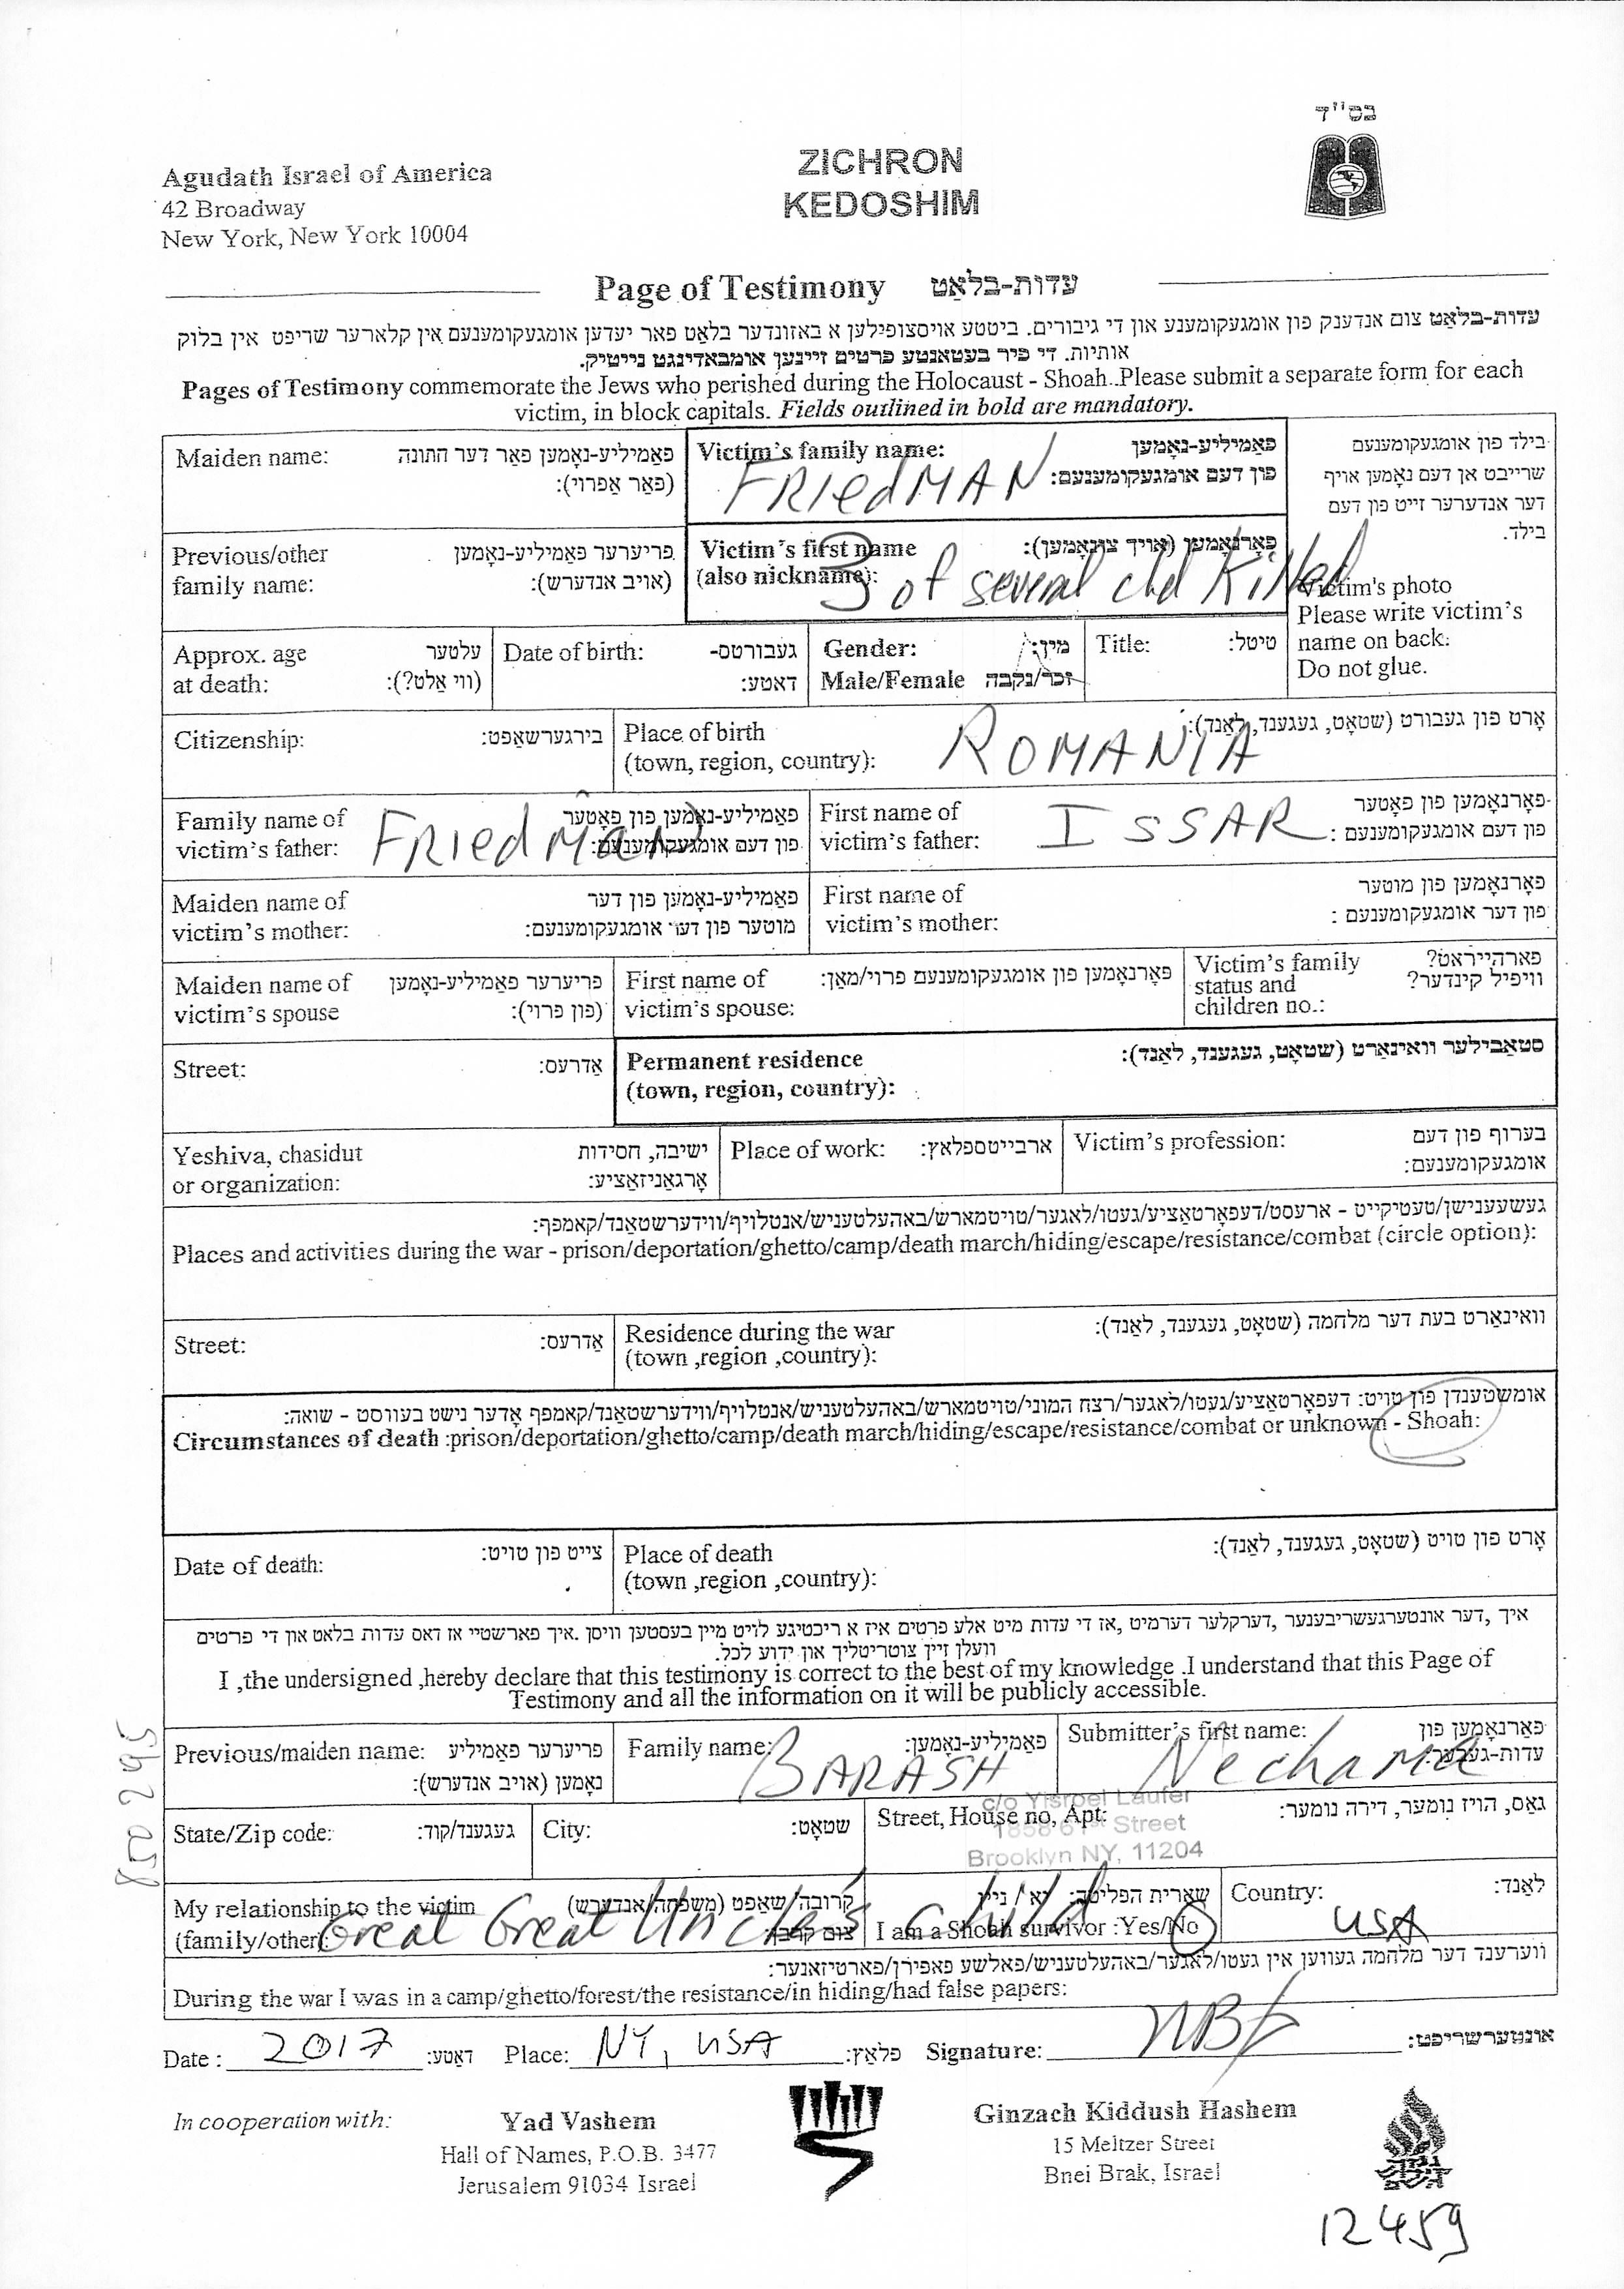 בס"ד
Agudath Israel of America
42 Broadway
New York, New York 10004
ZICHRON
KEDOSHIM
Page of Testimony עדות-בלאַט
עדות-בלאַט צום אנדענק פון אומגעקומענע און די גיבורים. ביטטע אויסצופילען א באזונדער בלאט פאר יעדען אומגעקומענעם אין קלארער שריפט אין בלוק
אותיות. די פיר בעטאנטע פרטים זיינען אומבאדינגט נייטיק.
Pages of Testimony commemorate the Jews who perished during the Holocaust - Shoah. Please submit a separate form for each
victim, in block capitals. Fields outlined in bold are mandatory.
Maiden name: פאַמיליע-נאָמען פאַר דער חתונה
(פאַר אַפרוי):
Victim's family name: פאַמיליע-נאָמען
פון דעם אומגעקומענעם:
FRIedMAN
בילד פון אומגעקומענעם
שרייבט אן דעם נאָמען אויף
דער אנדערער זייט פון דעם
בילד.
Previous/other פריערער פאַמיליע-נאָמען
family name: (אויב אנדערש):
Victim's first name פאָרנאָמען (אויך צונאָמען):
(also nickname):
3 of several chd Killed
Victim's photo
Please write victim's
name on back.
Do not glue.
Approx. age עלטער
at death: (ווי אַלט?):
Date of birth: געבורטס-
דאטע:
Gender: מין:
Male/Female זכר/נקבה
Title: טיטל:
Citizenship: בירגערשאַפט:
Place of birth אָרט פון געבורט (שטאָט, געגענד, לאַנד):
(town, region, country):
ROMANIA
Family name of פאַמיליע-נאָמען פון פאָטער
victim's father: פון דעם אומגעקומענעם:
FRIedMAN
First name of פאָרנאָמען פון פאָטער
victim's father: פון דעם אומגעקומענעם:
ISSAR
Maiden name of פאַמיליע-נאָמען פון דער
victim's mother: מוטער פון דער אומגעקומענעם:
First name of פאָרנאָמען פון מוטער
victim's mother: פון דער אומגעקומענעם:
Maiden name of פריערער פאַמיליע-נאָמען
victim's spouse (פון פרוי):
First name of פאָרנאָמען פון אומגעקומענעם פרוי/מאַן:
victim's spouse:
Victim's family פארהייראט?
status and וויפיל קינדער?
children no.:
Street: אַדרעס:
Permanent residence סטאַבילער וואינאָרט (שטאָט, געגענד, לאַנד):
(town, region, country):
Yeshiva, chasidut ישיבה, חסידות
or organization: אָרגאַניזאַציע:
Place of work: ארבייטספלאץ:
Victim's profession: בערוף פון דעם
אומגעקומענעם:
געשעענישן/טעטיקייט - ארעסט/דעפאָרטאַציע/געטו/לאגער/טויטמארש/באהעלטעניש/אנטלויף/ווידערשטאַנד/קאמפף:
Places and activities during the war - prison/deportation/ghetto/camp/death march/hiding/escape/resistance/combat (circle option):
Street: אַדרעס:
Residence during the war וואינאָרט בעת דער מלחמה (שטאָט, געגענד, לאַנד):
(town ,region ,country):
אומשטענדן פון טויט: דעפאָרטאַציע/געטו/לאגער/רצח המוני/טויטמארש/באהעלטעניש/אנטלויף/ווידערשטאַנד/קאמפף אָדער נישט בעוווסט - שואה:
Circumstances of death :prison/deportation/ghetto/camp/death march/hiding/escape/resistance/combat or unknown - Shoah:
Date of death: צייט פון טויט:
Place of death אָרט פון טויט (שטאָט, געגענד, לאַנד):
(town ,region ,country):
איך ,דער אונטערגעשריבענער ,דערקלער דערמיט ,אז די עדות מיט אלע פרטים איז א ריכטיגע לויט מיין בעסטען וויסן .איך פארשטיי אז דאס עדות בלאט און די פרטים
וועלן זיין צוטריטליך און ידוע לכל.
I ,the undersigned ,hereby declare that this testimony is correct to the best of my knowledge .I understand that this Page of
Testimony and all the information on it will be publicly accessible.
Previous/maiden name: פריערער פאַמיליע
נאָמען (אויב אנדערש):
Family name: פאַמיליע-נאָמען:
BARASH
Submitter's first name: פאָרנאָמען פון
עדות-געבער:
Nechama
State/Zip code: געגענד/קוד:
City: שטאָט:
Street, House no, Apt: גאַס, הויז נומער, דירה נומער:
c/o Yisroel Laufer
1858 61st Street
Brooklyn NY, 11204
My relationship to the victim קרובה'שאַפט (משפחה/אנדערש)
(family/other): צום קרבן:
Great Great Uncle's child
שארית הפליטה: יא / ניין
I am a Shoah survivor :Yes/No
Country: לאַנד:
USA
ווערענד דער מלחמה געווען אין געטו/לאַגער/באהעלטעניש/פאלשע פאפירן/פארטיזאנער:
During the war I was in a camp/ghetto/forest/the resistance/in hiding/had false papers:
Date : 2017 דאַטע: Place: NY, USA פלאַץ: Signature: NB אונטערשריפט:
In cooperation with:
Yad Vashem
Hall of Names, P.O.B. 3477
Jerusalem 91034 Israel
Ginzach Kiddush Hashem
15 Meltzer Street
Bnei Brak, Israel
12459